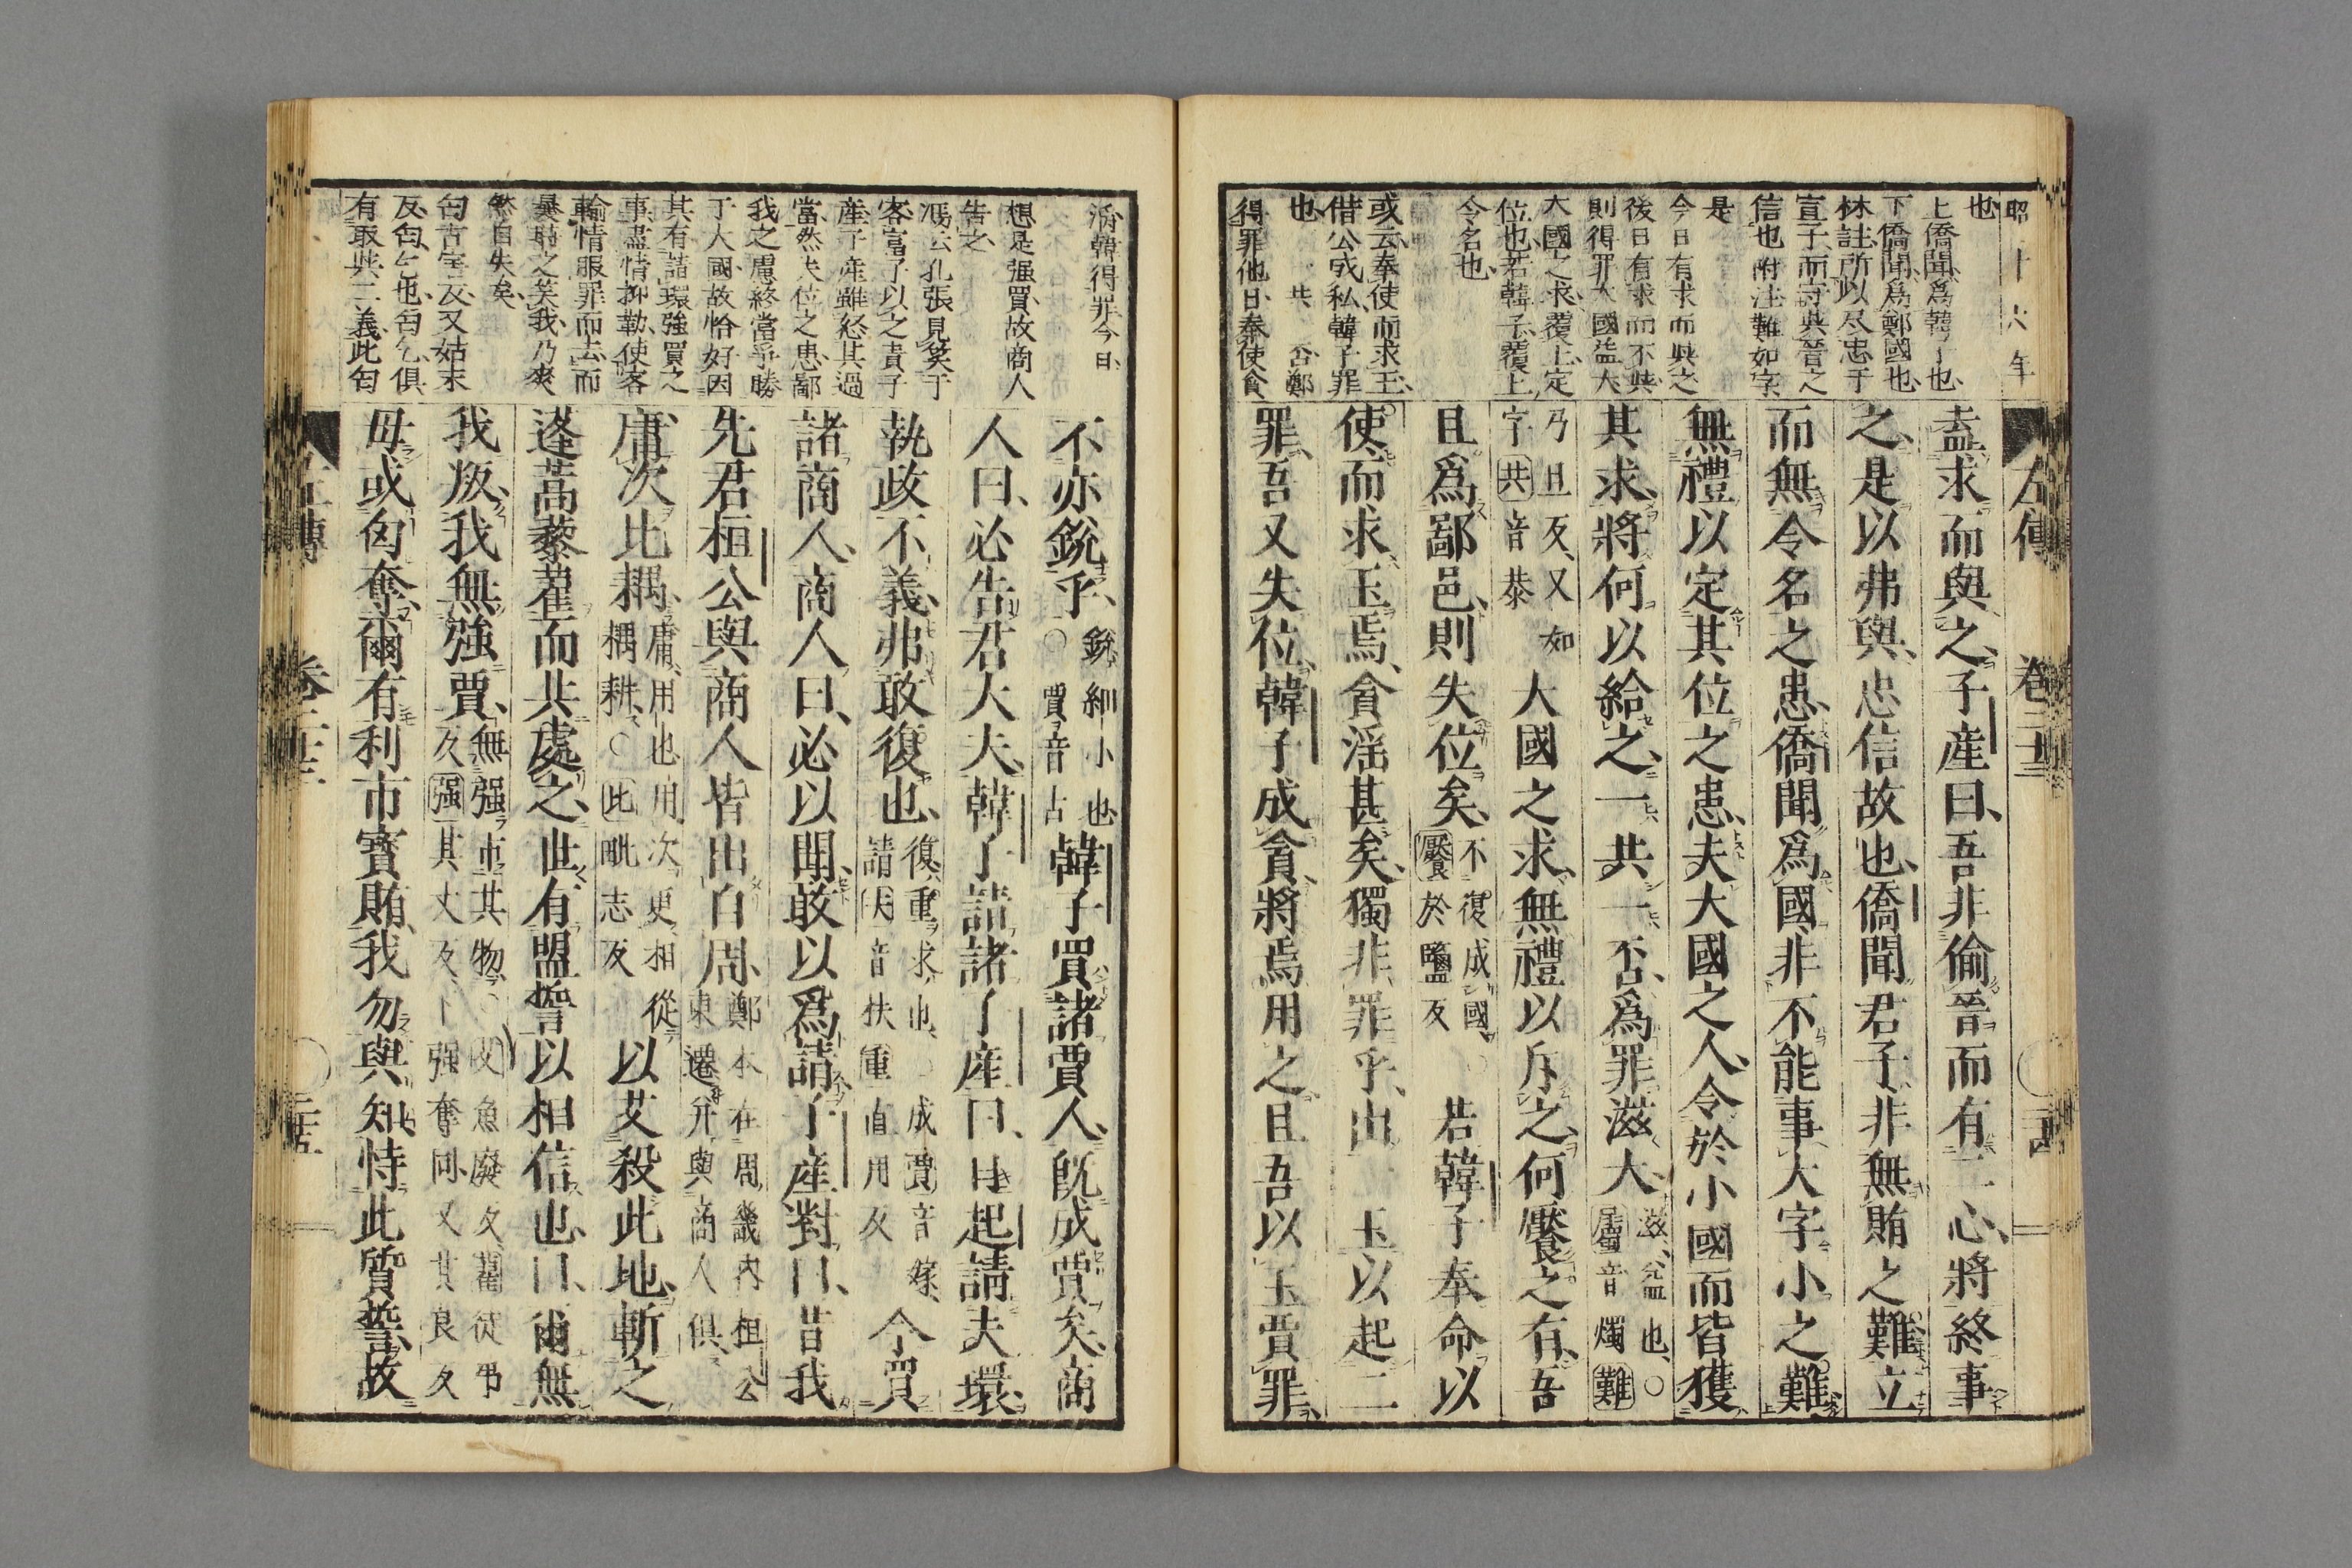 昭十六年
左傳
卷二十三
也
上僑聞爲韓子也
下僑聞爲鄭國也
林註所以尽忠于
宣子而守其晉之
信也附注難如字
是
今日有求而與之
後日有求而不與
則得罪大國益大
大國之求覆上定
位也若韓子覆上
令名也
或云奉使而求玉
偕公成私韓子罪
也 共 否鄭
得罪他日奉使貪
盍求而與之子產曰吾非偷晉而有二心將終事
之是以弗與忠信故也僑聞君子非無賄之難立
而無令名之患僑聞爲國非不能事大字小之難
無禮以定其位之患夫大國之人令於小國而皆獲
其求將何以給之一共一否爲罪滋大
滋益也○
屬音燭難
乃旦反又如
字共音恭
大國之求無禮以斥之何饜之有吾
且爲鄙邑則失位矣
不復成國○
饜於鹽反
若韓子奉命以
使而求玉焉貪淫甚矣獨非罪乎出 玉以起二
罪吾又失位韓子成貪將焉用之且吾以玉賈罪
濟韓得罪今日
想是强買故商人
告之
馮云孔張見笑于
客富子以之責子
產子產雖怒其過
當然失位之患鄙
我之慮終當爭勝
于大國故恰好因
其有諸環強買之
事盡情抑勒使客
輸情服罪而去而
曩時之笑我乃爽
然自失矣
匄古害反又姑末
反匄乞也匄乞俱
有取與二義此匄
不亦銳乎
銳細小也
○賈音古
韓子買諸賈人旣成賈矣商
人曰必告君大夫韓子請諸子產曰日起請夫環
執政不義弗敢復也
復重求也○成賈音嫁
請夫音扶重直用反
今買
諸商人商人曰必以聞敢以爲請子產對曰昔我
先君桓公與商人皆出自周
鄭本在周畿内桓公
東遷幷與商人俱
庸次比耦
庸用也用次更相從
耦耕○比毗志反
以艾殺此地斬之
蓬蒿藜藋而共處之世有盟誓以相信也曰爾無
我叛我無强賈
無强市其物○艾魚廢反藋徒弔
反强其丈反下强奪同又其良反
毋或匄奪爾有利市寳賄我勿與知恃此質誓故
左傳
卷二十三
二十五